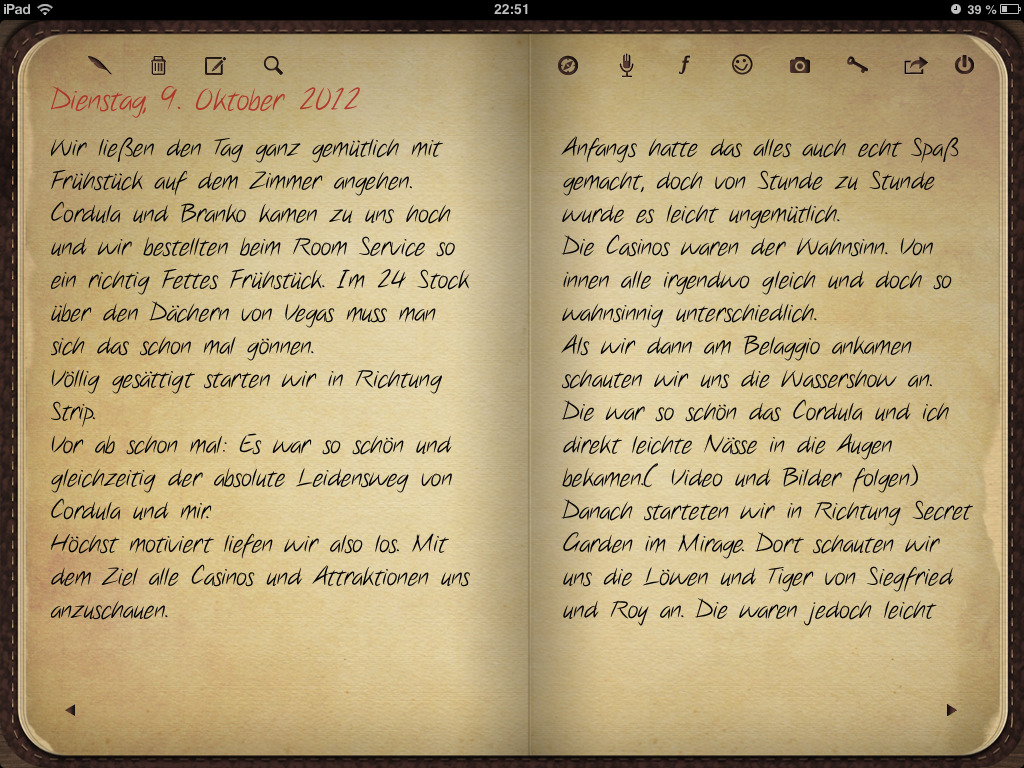 iPad
22:51
39 %
Dienstag, 9. Oktober 2012
Wir ließen den Tag ganz gemütlich mit
Frühstück auf dem Zimmer angehen.
Cordula und Branko kamen zu uns hoch
und wir bestellten beim Room Service so
ein richtig Fettes Frühstück. Im 24 Stock
über den Dächern von Vegas muss man
sich das schon mal gönnen.
Völlig gesättigt starten wir in Richtung
Strip.
Vor ab schon mal: Es war so schön und
gleichzeitig der absolute Leidensweg von
Cordula und mir.
Höchst motiviert liefen wir also los. Mit
dem Ziel alle Casinos und Attraktionen uns
anzuschauen.
Anfangs hatte das alles auch echt Spaß
gemacht, doch von Stunde zu Stunde
wurde es leicht ungemütlich.
Die Casinos waren der Wahnsinn. Von
innen alle irgendwo gleich und doch so
wahnsinnig unterschiedlich.
Als wir dann am Belaggio ankamen
schauten wir uns die Wassershow an.
Die war so schön das Cordula und ich
direkt leichte Nässe in die Augen
bekamen.( Video und Bilder folgen)
Danach starteten wir in Richtung Secret
Garden im Mirage. Dort schauten wir
uns die Löwen und Tiger von Siegfried
und Roy an. Die waren jedoch leicht